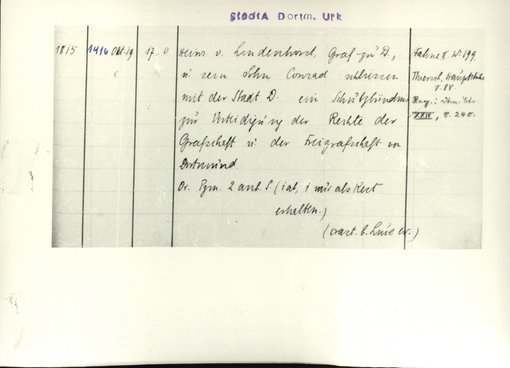 StadtA Dortm. Urk
1815 1416 Okt. 19 17. 0
Heinr. v. Lindenhorst, Graf zu D.,
u sein Sohn Conrad schliessen
mit der Stadt D. ein Schutzbündnis
zur Verteidigung der Rechte der
Grafschaft u der Freigrafschaft von
Dortmund.
Or. Pgm. 2 anh. S (1 ab, 1 nur als Rest
erhalten.)
Fahne II N 199
Thiersch, Hauptstuhl
S. 88.
Reg.: Dtm. Btr
XXIV, S. 240.